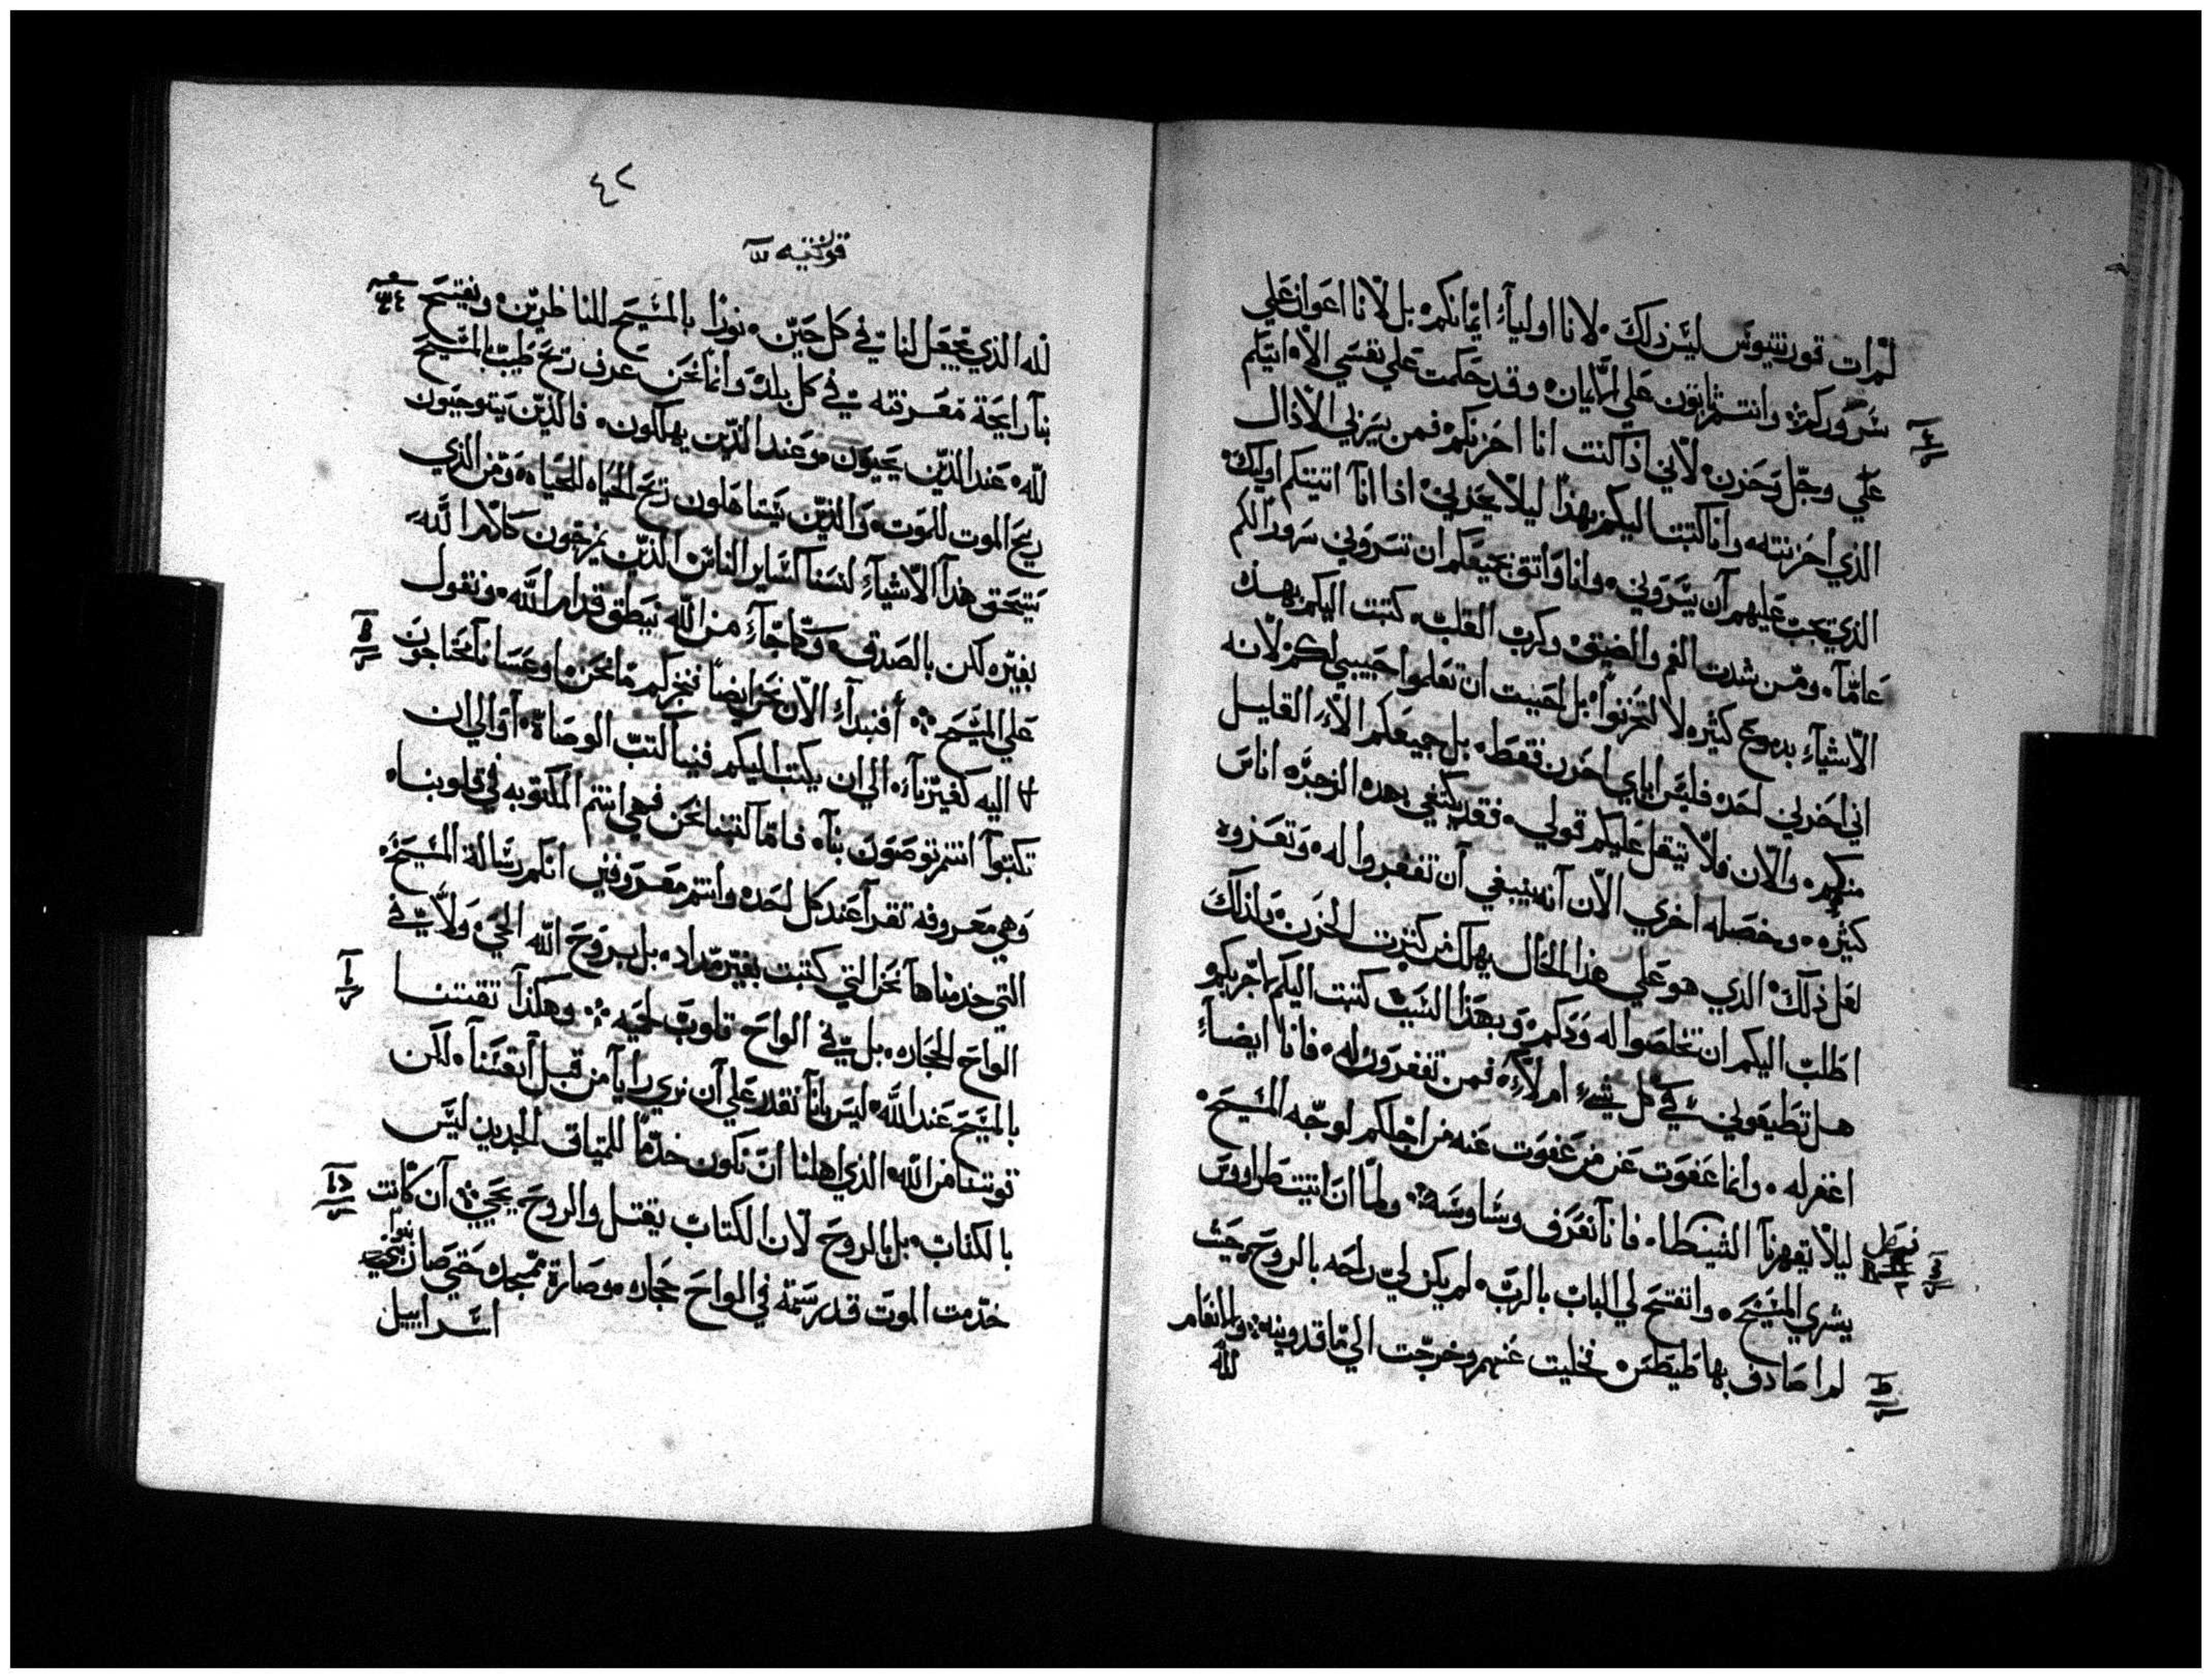 لم ات قورنتيوس ليس ذلك۰ لانا اوليآء ايمانكم۰ بل لانا اعوان علي
سروركم۰ وانتم ثابتون علي الايمان۰ وقد حكمت علي نفسي الا اتيكم
علي وجل وحزن۰ لاني اذا كنت انا احزنكم فمن يسرني الاذال
الذي احزنته۰ وانا كتبت اليكم بهذا ليلا يحزني اذا انا اتيتكم اوليك
الذي يجب عليهم ان يسروني۰ وانا واثق بجميعكم ان تسروني سرورا لكم
عامآ۰ ومن شدت الغم والضيق وكرب القلب۰ كتبت اليكم بهذه
الاشيآء بدموع كثيره لا لتحزنوا۰ بل احببت ان تعلموا حبيبي لكم لانه
اني احزني احد۰ فليس اياي احزن فقط۰ بل جميعكم الا القليل
منكم۰ والان فلا يتقل عليكم قولي۰ فقد يكتفي بهده الزجره اناس
كثيره۰ وخصله اخري الان انه ينبغي ان تغفروا له۰ وتعزوه
لعل ذلك الذي هو علي هذا الحال يهلك من كثرت الحزن۰ ولذلك
اطلب اليكم ان تخلصوا له ودكم۰ وبهذا السبب كتبت اليكم لاجربكم
هل تطيعوني في كل شيء ام لا۰ فمن تغفرون له۰ فانا ايضآ
اغفر له۰ وانما عفوت عن من عفوت عنه من اجلكم لوجه المسيح۰
ليلا تقهرنا الشيطا۰ فانا نعرف وساوسه۰ ولما ان اتيت طراووس
يشري المسيح۰ وانفتح لي الباب بالرب۰ لم يكن لي راحه بالروح حيث
لم اصادف بها طيطس۰ فخليت عنهم وخرجت الي ماقدونيه۰ والانعام
لله
٤٢
قورنتيه
لله الذي يجعل لنا في كل حين۰ نورا بالمسيح للناظرين۰ ويفتح
بنا رايحة معرفته في كل بلد۰ وانما نحن عرف ريح طيب بالمسيح
لله۰ عند الذين يحيون۰ وعند الذين يهلكون۰ فالذين يتوجبون
ريح الموت للموت۰ والذين يستاهلون ريح الحياه للحياه۰ ومن الذي
يستحق هذا الاشيآء لسنا كساير الناس الذين يمزجون كلام الله
بغيره لكن بالصدق۰ وكما جآء من الله نيطق قدام الله۰ ونقول
علي المسيح۰ أفنبدآء الان نحن ايضا نخبركم ما نحن۰ او عسانا محتاجون
اليه كغيرنآء۰ الي ان يكتب اليكم فينا كتب الوصاة۰ او الي ان
تكتبوا انتم توصون بنا۰ فاما كتبنا نحن فهي انتم المكتوبه في قلوبنا۰
وهي معروفه تقرا عند كل احد۰ وانتم معروفين انكم رسالة المسيح۰
التي خدمناها نحن التي كتبت بغير مداد۰ بل بروح الله الحي۰ ولا في
الواح الحجاره۰ بل في الواح قلوب لحيه۰ وهكذا تقتنا
بالمسيح عند الله۰ ليس بانا نقدر علي ان نري رايا من قبل انفسنا۰ لكن
قوتنا من الله۰ الذي اهلنا ان نكون خدما للميثاق الجديد ليس
بالكتاب۰ بل بالروح لان الكتاب يقتل والروح يحيي۰ ان كانت
خدمت الموت قد رسمة في الواح حجاره۰ وصارة ممجده حتي صار بنوا
اسراييل